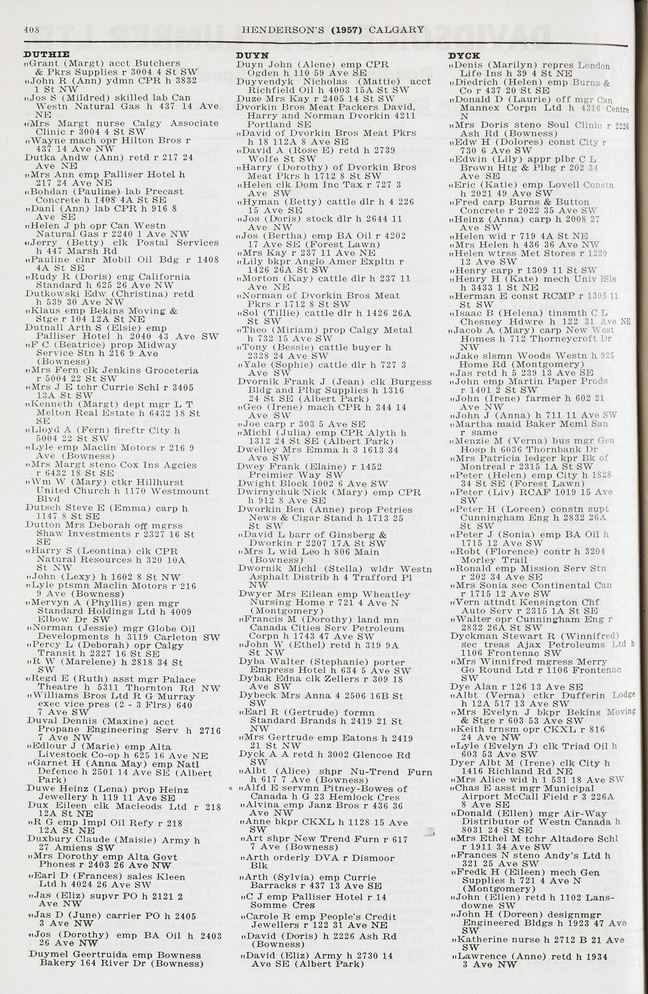 408
HENDERSON'S (1957) CALGARY
DUTHIE
„Grant (Margt) acct Butchers
& Pkrs Supplies r 3004 4 St SW
„John R (Ann) ydmn CPR h 3832
1 St NW
„Jos S (Mildred) skilled lab Can
Westn Natural Gas h 437 14 Ave
NE
„Mrs Margt nurse Calgy Associate
Clinic r 3004 4 St SW
„Wayne mach opr Hilton Bros r
437 14 Ave NW
Dutka Andw (Ann) retd r 217 24
Ave NE
„Mrs Ann emp Palliser Hotel h
217 24 Ave NE
„Bohdan (Pauline) lab Precast
Concrete h 1408 4A St SE
„Danl (Ann) lab CPR h 916 8
Ave SE
„Helen J ph opr Can Westn
Natural Gas r 2240 1 Ave NW
„Jerry (Betty) clk Postal Services
h 447 Marsh Rd
„Pauline clnr Mobil Oil Bdg r 1408
4A St SE
„Rudy R (Doris) eng California
Standard h 625 26 Ave NW
Dutkowski Edw (Christina) retd
h 539 30 Ave NW
„Klaus emp Bekins Moving &
Stge r 104 12A St NE
Dutnall Arth S (Elsie) emp
Palliser Hotel h 2040 43 Ave SW
„F C (Beatrice) prop Midway
Service Stn h 216 9 Ave
(Bowness)
„Mrs Fern clk Jenkins Groceteria
r 5004 22 St SW
„Mrs J E tchr Currie Schl r 3405
13A St SW
„Kenneth (Margt) dept mgr L T
Melton Real Estate h 6432 18 St
SE
„Lloyd A (Fern) fireftr City h
5004 22 St SW
„Lyle emp Maclin Motors r 216 9
Ave (Bowness)
„Mrs Margt steno Cox Ins Agcies
r 6432 18 St SE
„Wm W (Mary) ctkr Hillhurst
United Church h 1170 Westmount
Blvd
Dutsch Steve E (Emma) carp h
1147 8 St SE
Dutton Mrs Deborah off mgrss
Shaw Investments r 2327 16 St
SE
„Harry S (Leontina) clk CPR
Natural Resources h 320 10A
St NW
„John (Lexy) h 1602 8 St NW
„Lyle ptsmn Maclin Motors r 216
9 Ave (Bowness)
„Mervyn A (Phyllis) gen mgr
Standard Holdings Ltd h 4009
Elbow Dr SW
„Norman (Jessie) mgr Globe Oil
Developments h 3119 Carleton SW
„Percy L (Deborah) opr Calgy
Transit h 2327 16 St SE
„R W (Marelene) h 2818 34 St
SW
„Regd E (Ruth) asst mgr Palace
Theatre h 5311 Thornton Rd NW
„Williams Bros Ltd R G Murray
exec vice pres (2 - 3 Flrs) 640
7 Ave SW
Duval Dennis (Maxine) acct
Propane Engineering Serv h 2716
7 Ave NW
„Edlour J (Marie) emp Alta
Livestock Co-op h 625 16 Ave NE
„Garnet H (Anna May) emp Natl
Defence h 2501 14 Ave SE (Albert
Park)
Duwe Heinz (Lena) prop Heinz
Jewellery h 119 11 Ave SE
Dux Eileen clk Macleods Ltd r 218
12A St NE
„R G emp Impl Oil Refy r 218
12A St NE
Duxbury Claude (Maisie) Army h
27 Amiens SW
„Mrs Dorothy emp Alta Govt
Phones r 2403 26 Ave NW
„Earl D (Frances) sales Kleen
Ltd h 4024 26 Ave SW
„Jas (Eliz) supvr PO h 2121 2
Ave NW
„Jas D (June) carrier PO h 2405
3 Ave NW
„Jos (Dorothy) emp BA Oil h 2403
26 Ave NW
Duymel Geertruida emp Bowness
Bakery 164 River Dr (Bowness)
DUYN
Duyn John (Alene) emp CPR
Ogden h 110 59 Ave SE
Duyvendyk Nicholas (Mattie) acct
Richfield Oil h 4003 15A St SW
Duze Mrs Kay r 2405 14 St SW
Dvorkin Bros Meat Packers David,
Harry and Norman Dvorkin 4211
Portland SE
„David of Dvorkin Bros Meat Pkrs
h 18 112A 8 Ave SE
„David A (Rose E) retd h 2739
Wolfe St SW
„Harry (Dorothy) of Dvorkin Bros
Meat Pkrs h 1712 8 St SW
„Helen clk Dom Inc Tax r 727 3
Ave SW
„Hyman (Betty) cattle dlr h 4 226
15 Ave SE
„Jos (Doris) stock dlr h 2644 11
Ave NW
„Jos (Bertha) emp BA Oil r 4202
17 Ave SE (Forest Lawn)
„Mrs Kay r 237 11 Ave NE
„Lily bkpr Anglo Amer Expltn r
1426 26A St SW
„Morton (Kay) cattle dlr h 237 11
Ave NE
„Norman of Dvorkin Bros Meat
Pkrs r 1712 8 St SW
„Sol (Tillie) cattle dlr h 1426 26A
St SW
„Theo (Miriam) prop Calgy Metal
h 732 15 Ave SW
„Tony (Bessie) cattle buyer h
2328 24 Ave SW
„Yale (Sophie) cattle dlr h 727 3
Ave SW
Dvornik Frank J (Jean) clk Burgess
Bldg and Plbg Supplies h 1316
24 St SE (Albert Park)
„Geo (Irene) mach CPR h 344 14
Ave SW
„Joe carp r 303 5 Ave SE
„Michl (Julia) emp CPR Alyth h
1312 24 St SE (Albert Park)
Dwelley Mrs Emma h 3 1613 34
Ave SW
Dwey Frank (Elaine) r 1452
Preimier Way SW
Dwight Block 1002 6 Ave SW
Dwirnychuk Nick (Mary) emp CPR
h 912 8 Ave SE
Dworkin Ben (Anne) prop Petries
News & Cigar Stand h 1713 25
St SW
„David L barr of Ginsberg &
Dworkin r 2207 17A St SW
„Mrs L wid Leo h 806 Main
(Bowness)
Dwornik Michl (Stella) wldr Westn
Asphalt Distrib h 4 Trafford Pl
NW
Dwyer Mrs Eilean emp Wheatley
Nursing Home r 721 4 Ave N
(Montgomery)
„Francis M (Dorothy) land mn
Canada Cities Serv Petroleum
Corpn h 1743 47 Ave SW
„John W (Ethel) retd h 319 9A
St NW
Dyba Walter (Stephanie) porter
Empress Hotel h 634 5 Ave SW
Dybak Edna clk Zellers r 309 18
Ave SW
Dybeck Mrs Anna 4 2506 16B St
SW
„Earl R (Gertrude) formn
Standard Brands h 2419 21 St
NW
„Mrs Gertrude emp Eatons h 2419
21 St NW
Dyck A A retd h 3002 Glencoe Rd
SW
„Albt (Alice) shpr Nu-Trend Furn
h 617 7 Ave (Bowness)
„Alfd E servmn Pitney-Bowes of
Canada h G 23 Hemlock Cres
„Alvina emp Janz Bros r 436 36
Ave NW
„Anne bkpr CKXL h 1128 15 Ave
SW
„Art shpr New Trend Furn r 617
7 Ave (Bowness)
„Arth orderly DVA r Dismoor
Blk
„Arth (Sylvia) emp Currie
Barracks r 437 13 Ave SE
„C J emp Palliser Hotel r 14
Somme Cres
„Carole R emp People's Credit
Jewellers r 122 31 Ave NE
„David (Doris) h 2226 Ash Rd
(Bowness)
„David (Eliz) Army h 2730 14
Ave SE (Albert Park)
DYCK
„Denis (Marilyn) repres London
Life Ins h 39 4 St NE
„Diedrich (Helen) emp Burns &
Co r 437 20 St SE
„Donald D (Laurie) off mgr Can
Mannex Corpn Ltd h 4316 Centre
N
„Mrs Doris steno Soul Clinic r 2226
Ash Rd (Bowness)
„Edw H (Dolores) const City r
730 6 Ave SW
„Edwin (Lily) appr plbr C L
Brown Htg & Plbg r 202 34
Ave SE
„Eric (Katie) emp Lovell Constn
h 2021 49 Ave SW
„Fred carp Burns & Button
Concrete r 2022 35 Ave SW
„Heinz (Anna) carp h 2008 27
Ave SW
„Helen wid r 719 4A St NE
„Mrs Helen h 436 36 Ave NW
„Helen wtrss Met Stores r 1220
12 Ave SW
„Henry carp r 1309 11 St SW
„Henry H (Kate) mech Univ ISls
h 3433 1 St NE
„Herman E const RCMP r 1305 11
St SW
„Isaac B (Helena) tinsmth C L
Chesney Hdwre h 122 31 Ave NE
„Jacob A (Mary) carp New West
Homes h 712 Thorneycroft Dr
NW
„Jake slsmn Woods Westn h 925
Home Rd (Montgomery)
„Jas retd h 5 239 13 Ave SE
„John emp Martin Paper Prods
r 1401 2 St SW
„John (Irene) farmer h 602 21
Ave NW
„John J (Anna) h 711 11 Ave SW
„Martha maid Baker Meml San
r same
„Menzie M (Verna) bus mgr Gen
Hosp h 6036 Thornbank Dr
„Mrs Patricia ledger kpr Bk of
Montreal r 2315 1A St SW
„Peter (Helen) emp City h 1828
34 St SE (Forest Lawn)
„Peter (Liv) RCAF 1019 15 Ave
SW
„Peter H (Loreen) constn supt
Cunningham Eng h 2832 26A
St SW
„Peter J (Sonia) emp BA Oil h
1715 12 Ave SW
„Robt (Florence) contr h 3204
Morley Trail
„Ronald emp Mission Serv Stn
r 202 34 Ave SE
„Mrs Sonia sec Continental Can
r 1715 12 Ave SW
„Vern attndt Kensington Chf
Auto Serv r 2315 1A St SW
„Walter opr Cunningham Eng r
2832 26A St SW
Dyckman Stewart R (Winnifred)
sec treas Ajax Petroleums Ltd h
1106 Frontenac SW
„Mrs Winnifred mgress Merry
Go Round Ltd r 1106 Frontenac
SW
Dye Alan r 126 13 Ave SE
„Albt (Verna) ctkr Dufferin Lodge
h 12A 517 13 Ave SW
„Mrs Evelyn J bkpr Bekins Moving
& Stge r 603 53 Ave SW
„Keith trnsm opr CKXL r 816
24 Ave NW
„Lyle (Evelyn J) clk Triad Oil h
603 53 Ave SW
Dyer Albt M (Irene) clk City h
1416 Richland Rd NE
„Mrs Alice wid h 1 531 18 Ave SW
„Chas E asst mgr Municipal
Airport McCall Field r 3 226A
8 Ave SE
„Donald (Ellen) mgr Air-Way
Distributor of Westn Canada h
8031 24 St SE
„Mrs Ethel M tchr Altadore Schl
r 1911 34 Ave SW
„Frances N steno Andy's Ltd h
321 25 Ave SW
„Fredk H (Eileen) mech Gen
Supplies h 721 4 Ave N
(Montgomery)
„John (Ellen) retd h 1102 Lans-
downe SW
„John H (Doreen) designmgr
Engineered Bldgs h 1923 47 Ave
SW
„Katherine nurse h 2712 B 21 Ave
SW
„Lawrence (Anne) retd h 1934
3 Ave NW